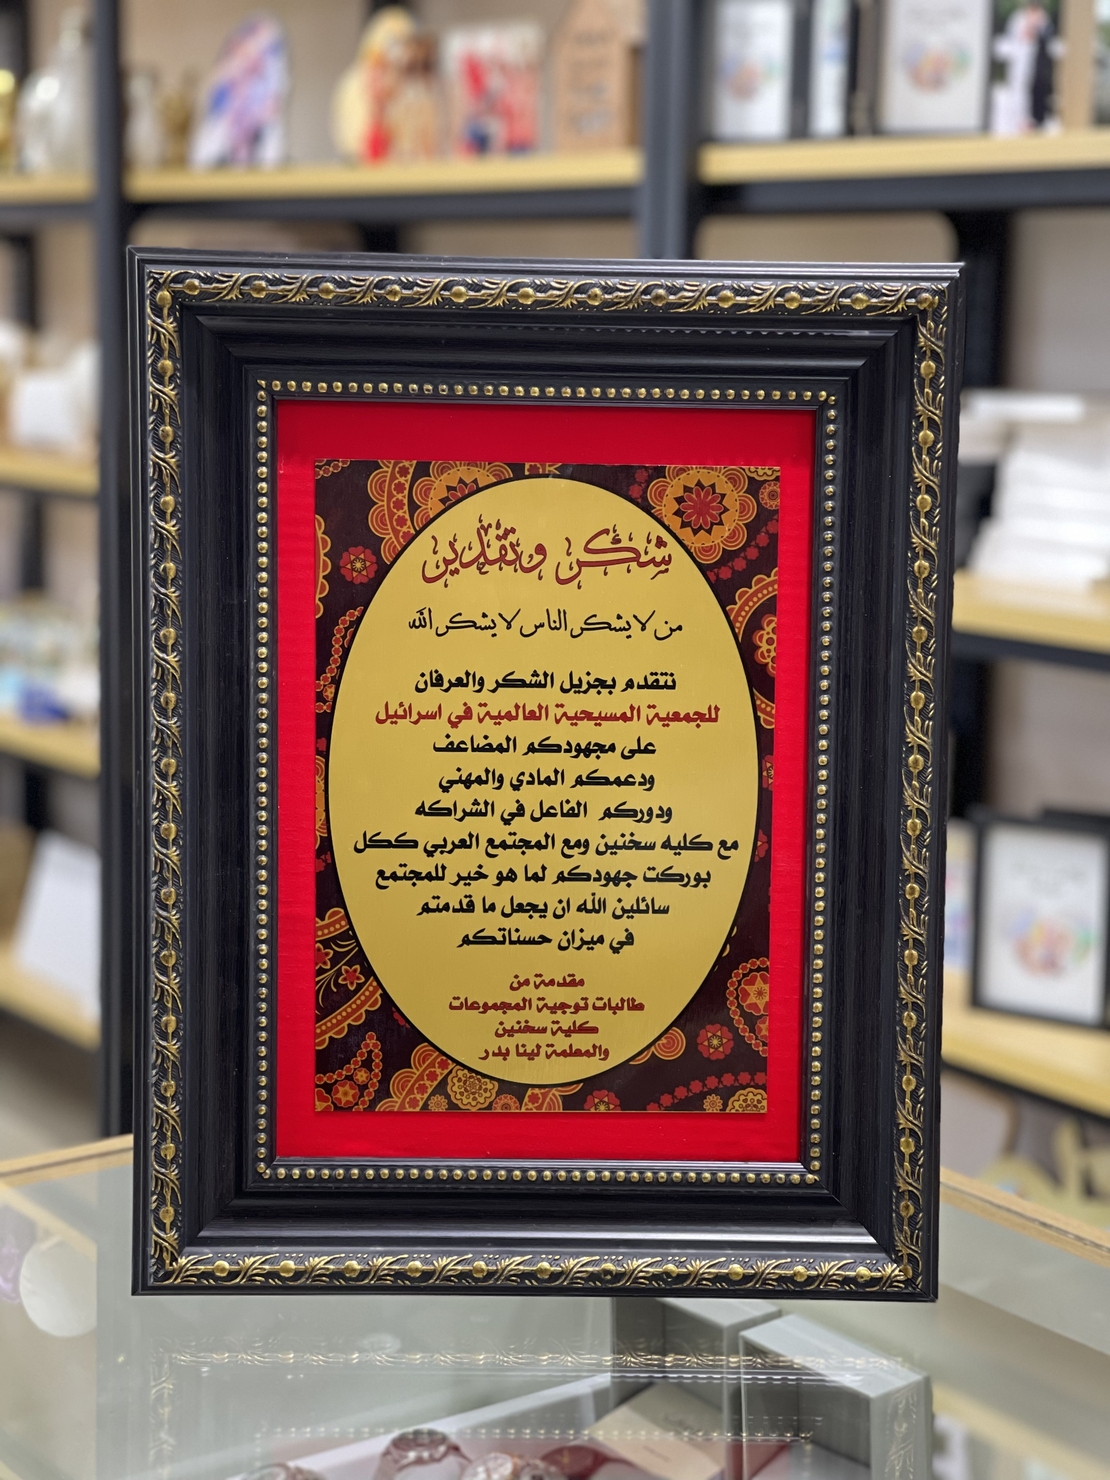 شكر وتقدير
من لا يشكر الناس لا يشكر الله
نتقدم بجزيل الشكر والعرفان
للجمعية المسيحية العالمية في اسرائيل
على مجهودكم المضاعف
ودعمكم المادي والمهني
ودوركم الفاعل في الشراكه
مع كليه سخنين ومع المجتمع العربي ككل
بوركت جهودكم لما هو خير للمجتمع
سائلين الله ان يجعل ما قدمتم
في ميزان حسناتكم
مقدمة من
طالبات توجية المجموعات
كلية سخنين
والمعلمة لينا بدر